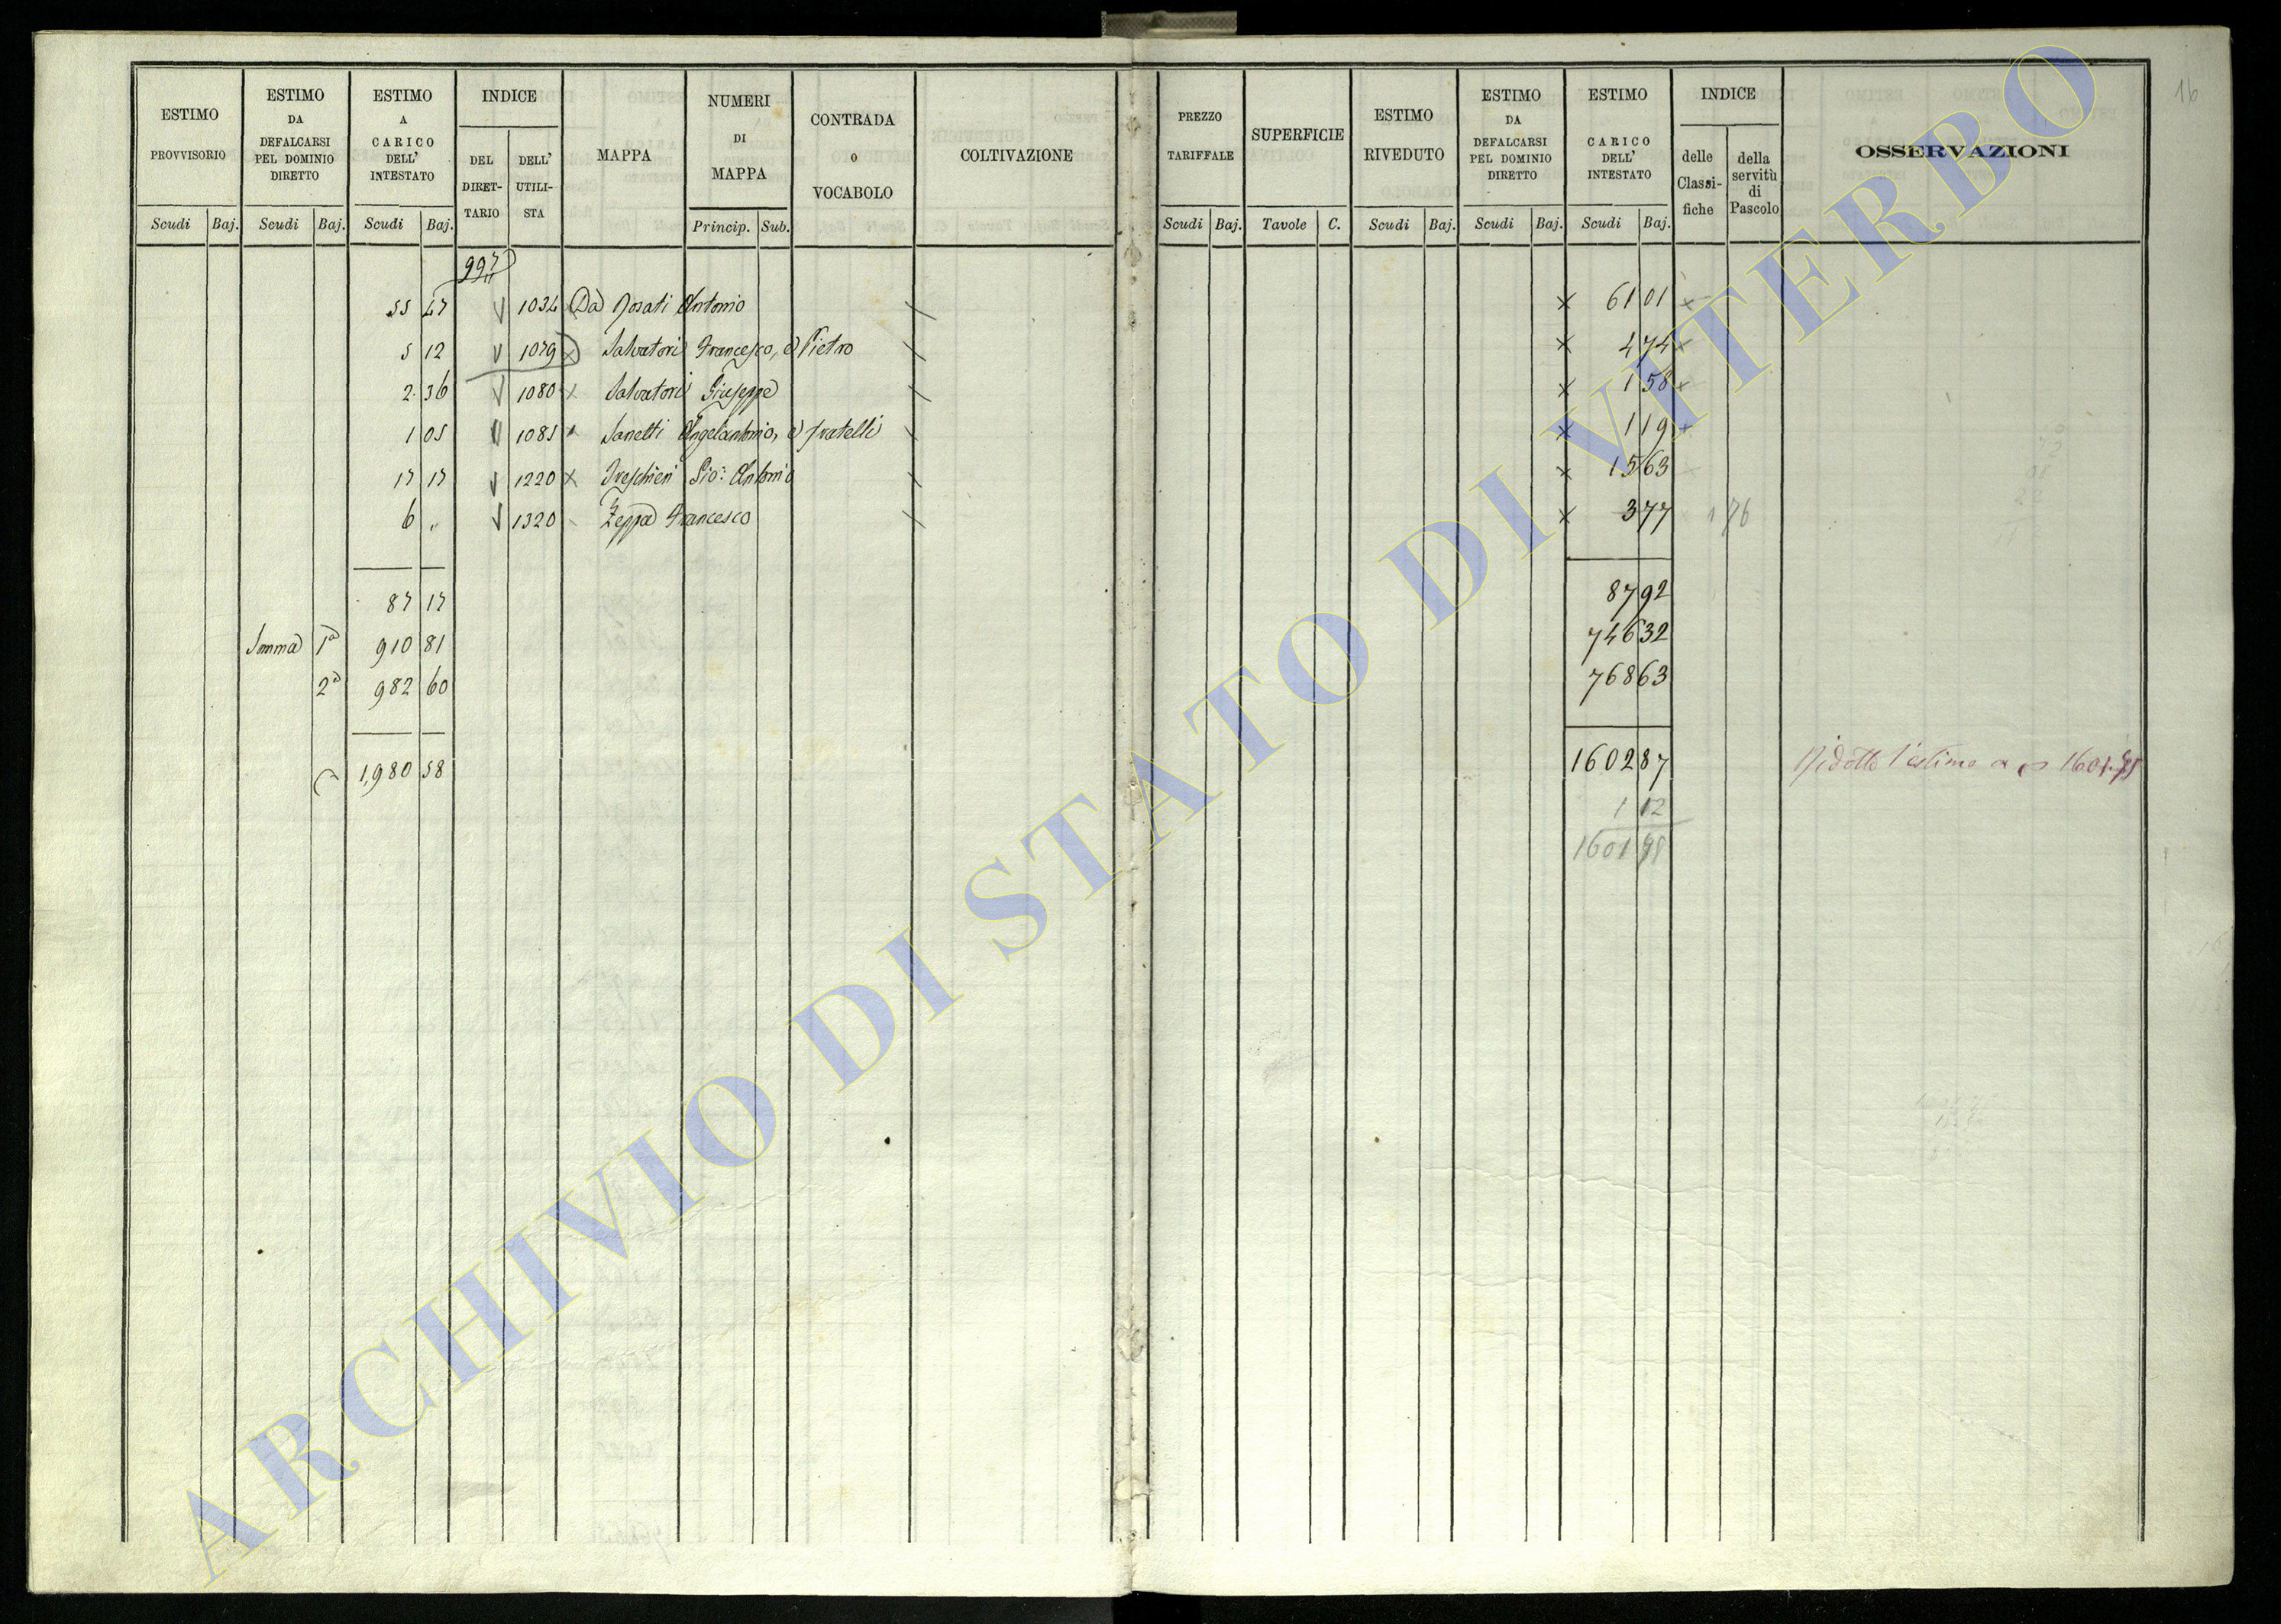 16
ESTIMO PROVVISORIO
ESTIMO DA DEFALCARSI PEL DOMINIO DIRETTO
ESTIMO A CARICO DELL' INTESTATO
INDICE
DEL DIRET-TARIO
DELL' UTILI-STA
MAPPA
NUMERI DI MAPPA
CONTRADA O VOCABOLO
COLTIVAZIONE
PREZZO TARIFFALE
SUPERFICIE
ESTIMO RIVEDUTO
ESTIMO DA DEFALCARSI PEL DOMINIO DIRETTO
ESTIMO CARICO DELL' INTESTATO
INDICE
delle Classi-fiche
della servitù di Pascolo
OSSERVAZIONI
Scudi Baj. Scudi Baj. Scudi Baj. Princip. Sub. Scudi Baj. Tavole C. Scudi Baj. Scudi Baj. Scudi Baj.
997
55 47 1034 Da Rosati Antonio 61 01
5 12 1079 Salvatori Francesco, e Pietro 4 74
2 36 1080 Salvatori Giuseppe 1 58
1 05 1085 Sanetti Angelantonio, e fratelli 1 19
17 17 1220 Treschieri Gio: Antonio 15 63
6 „ 1320 Zeppa Francesco 3 77 1 76
87 17 87 92
Somma 1ª 910 81 746 32
2ª 982 60 768 63
1,980 58 1602 87 Ridotto l'estimo a 1601.75
1 12
1601 75
ARCHIVIO DI STATO DI VITERBO